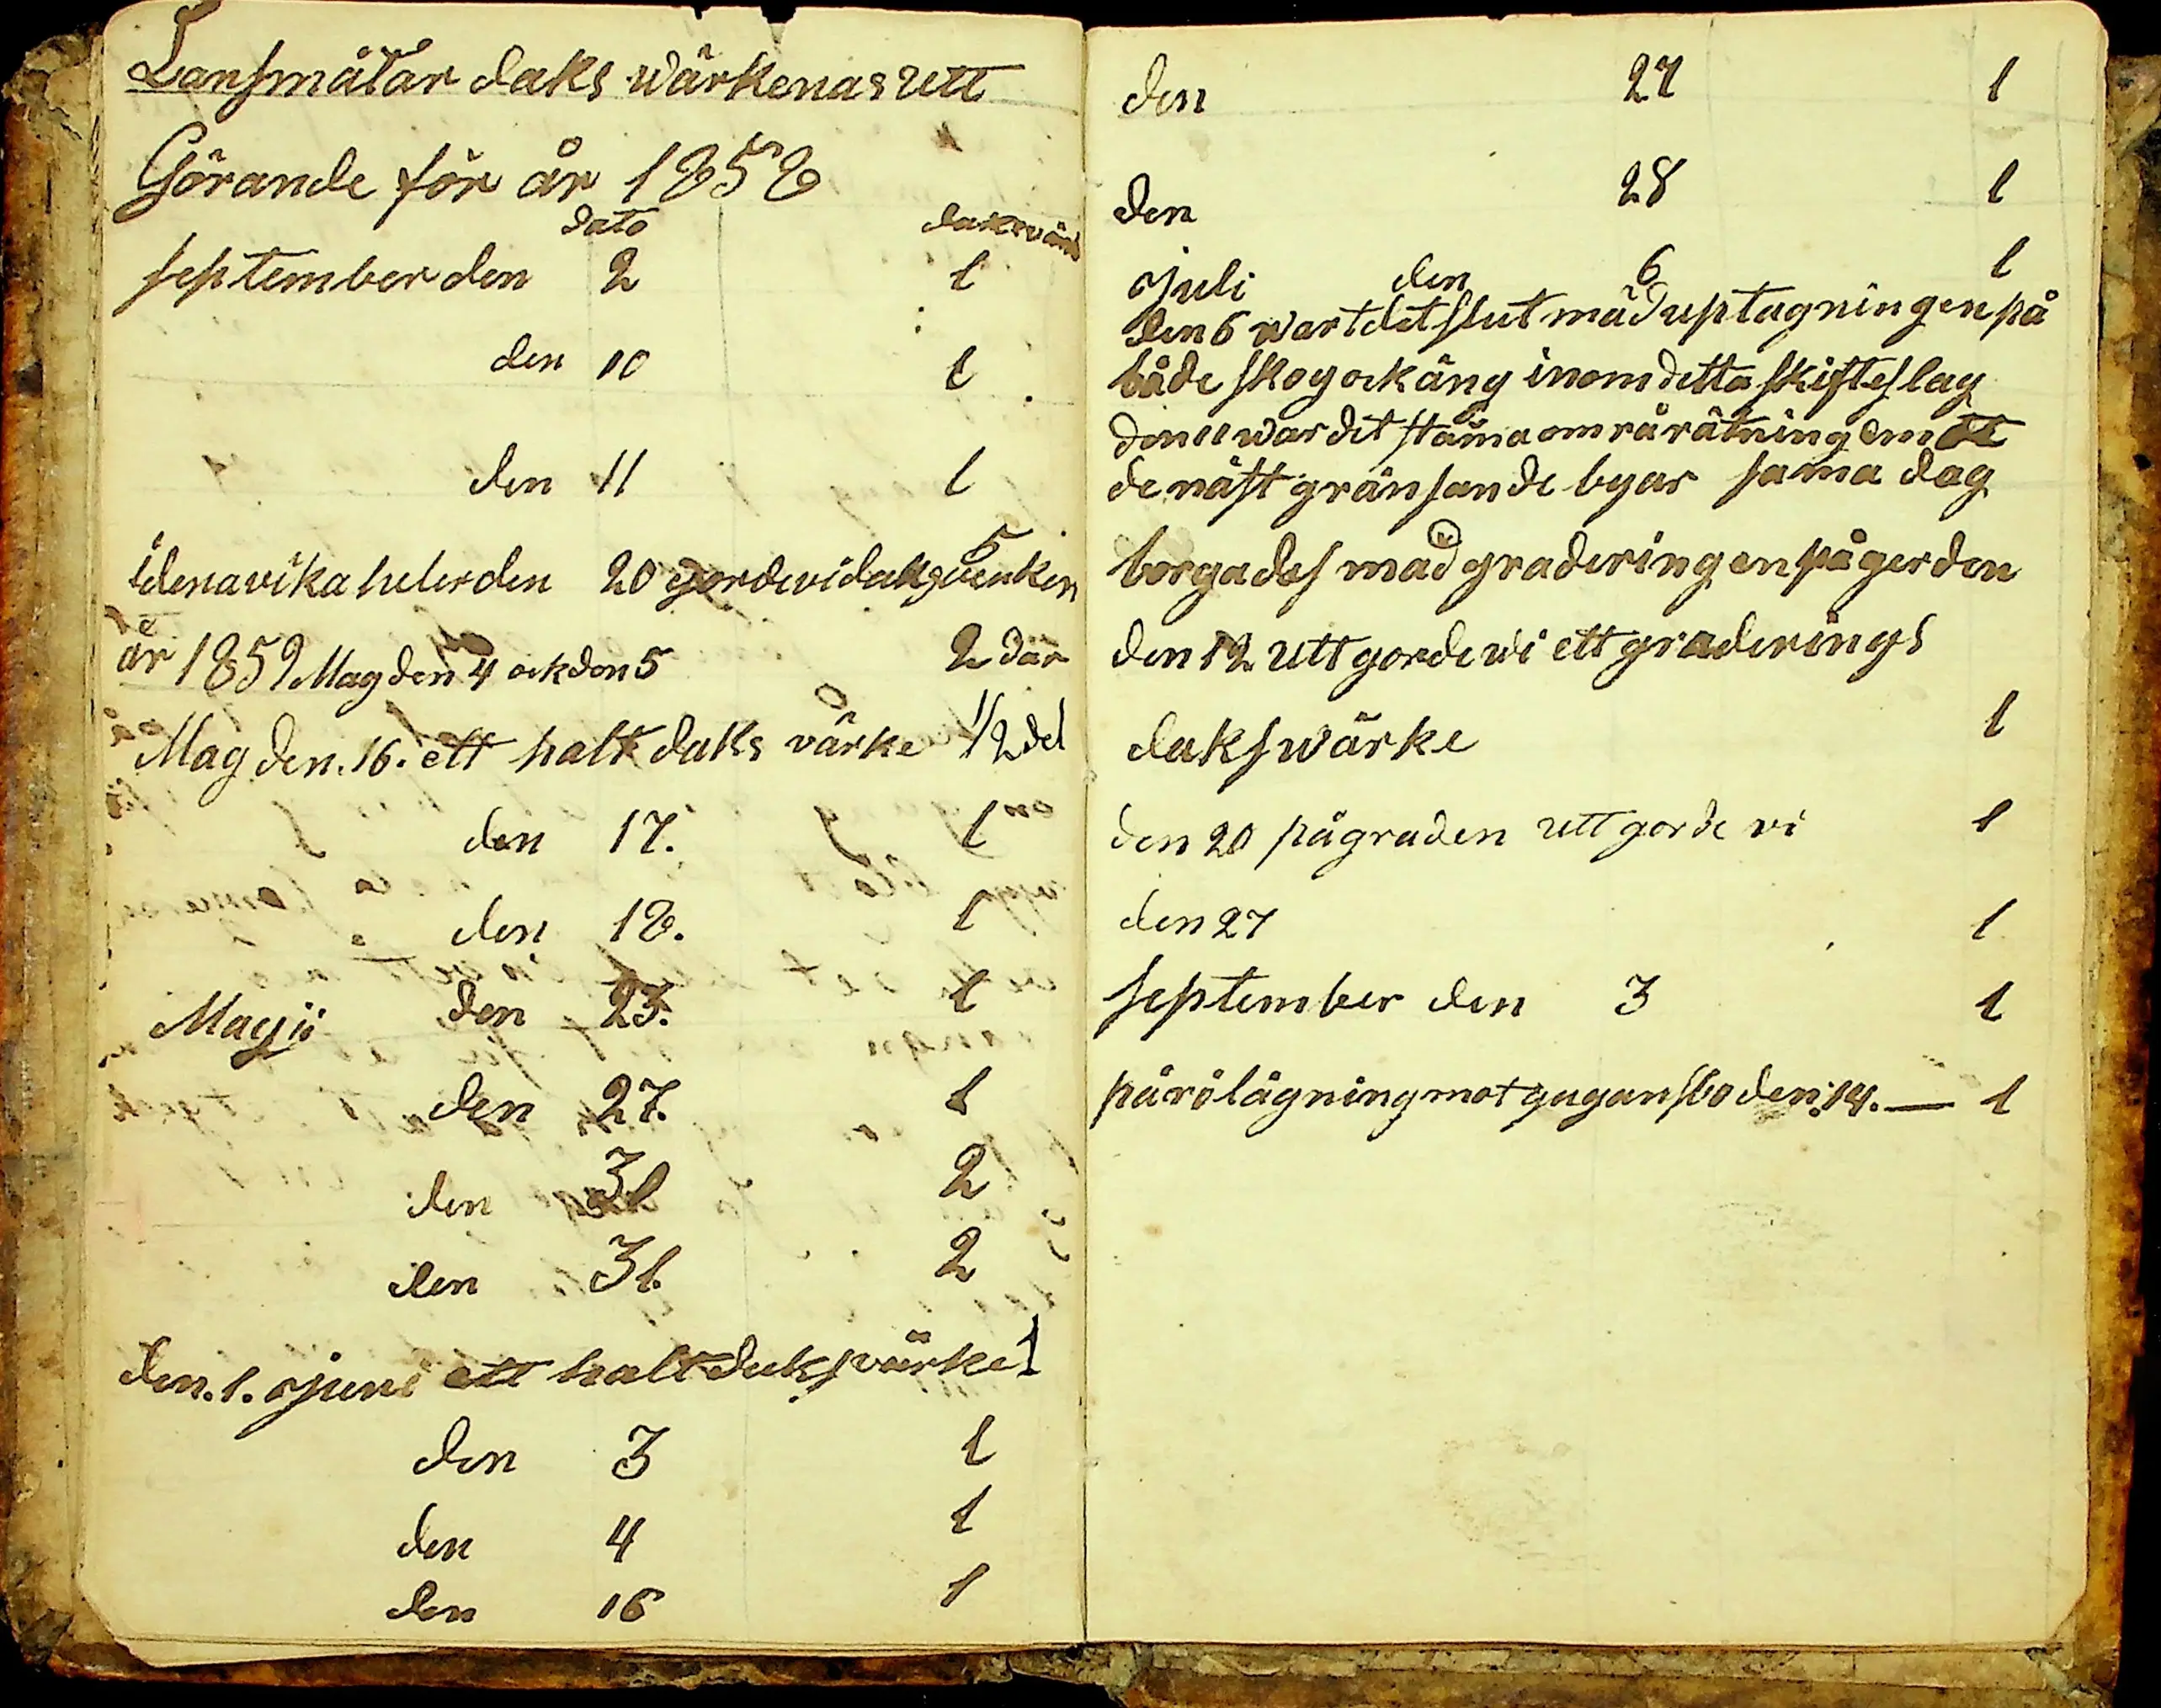 Lansmätar daks wärkenas utt
Görande för år 1858
dato dakswärk
september den 2 1
den 10 1
den 11 1
idena vika heler den 20 gorde vi daksvenken 5
år 1859 Mag den 4 ock den 5 2 där
Mag den. 16. ett halt daks värke 1/2 del
den 17. 1
den 18. 1
Magii den 23. 1
den 27. 1
den 31 2
den 31. 2
den. 1. juni ett halt daks värke 1
den 3 1
den 4 1
den 16 1
den 27 1
den 28 1
juli den 6 1
den 6 wart det slut mäd uptagningen på
både skog ock äng inom detta skifteslag
den 11 war det stäma om rårätning em ot
de näst gränsande byar sama dag
börgades mäd graderingen på gerden
den 12 utt gorde wi ett graderings
dakswärke 1
den 20 pågraden utt gorde vi 1
den 27 1
september den 3 1
på rölägning mot gugansbo den. 14. — 1